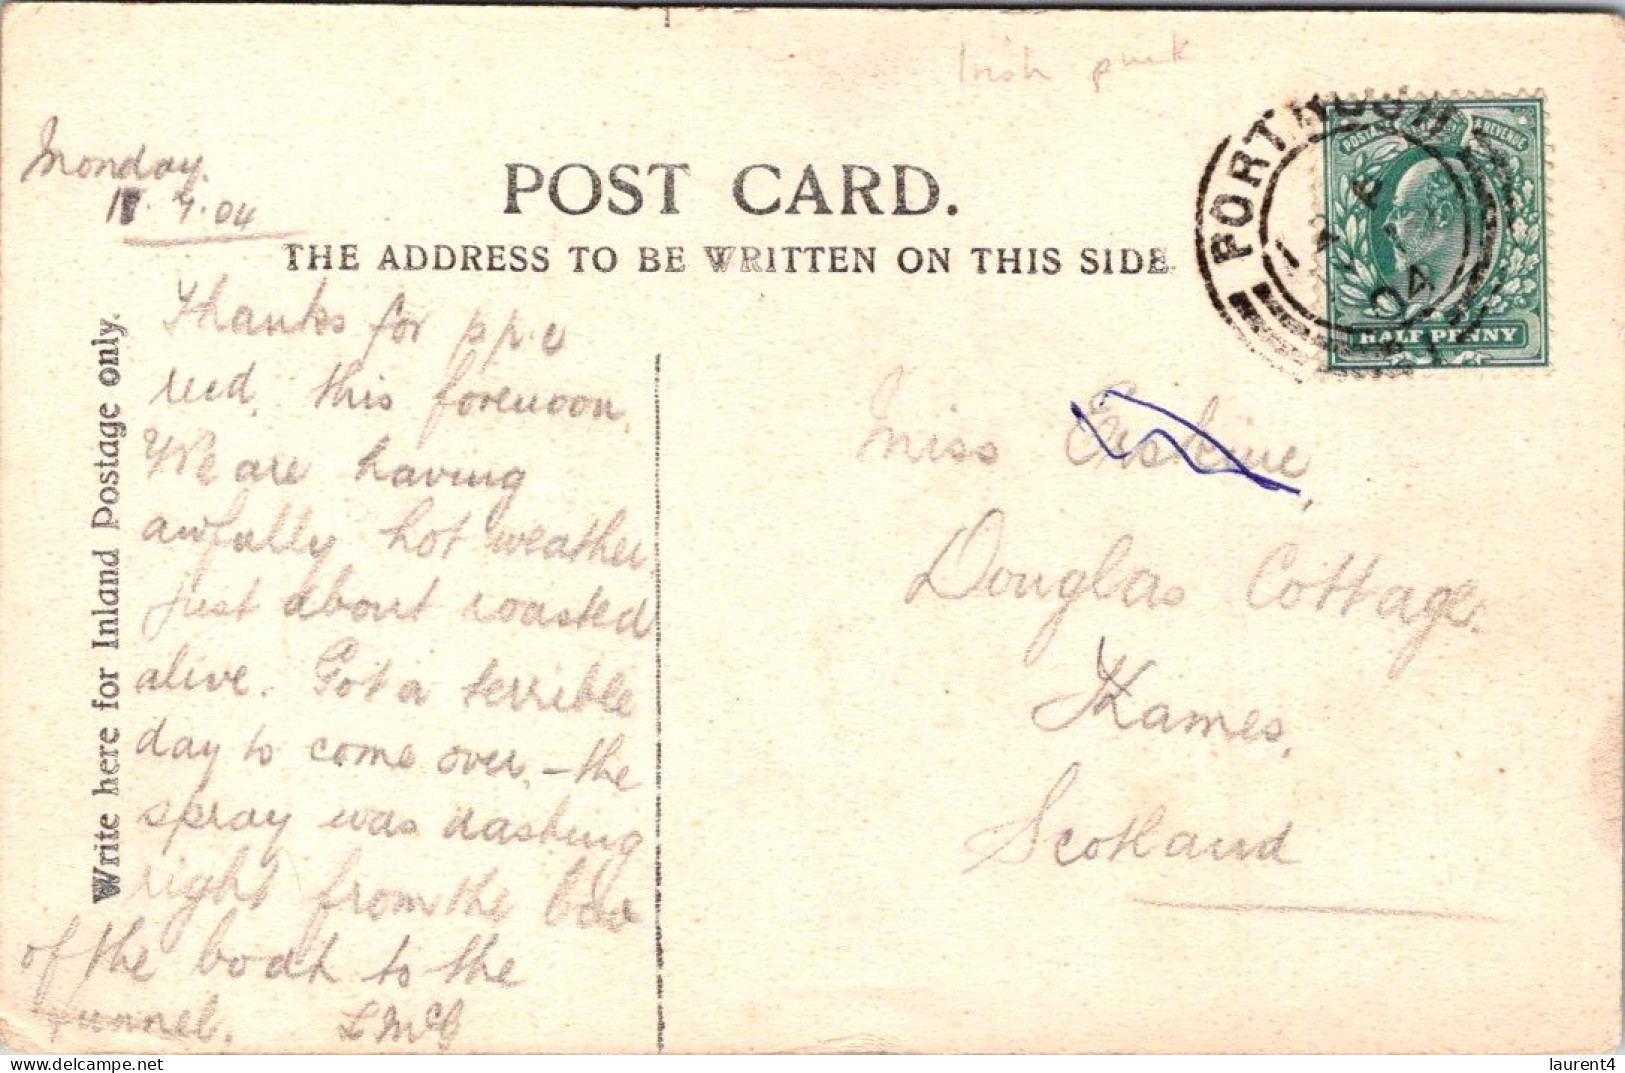 Irish
Monday.
.7.04
POST CARD.
THE ADDRESS TO BE WRITTEN ON THIS SIDE.
Write here for Inland Postage only.
Thanks for p.p.c
recd. this forenoon.
We are having
awfully hot weather
just about roasted
alive. Got a terrible
day to come over, – the
spray was dashing
right from the bow
of the boat to the
funnel. L McG
PORTRUSH
04
POSTAGE & REVENUE
HALF PENNY
Miss Erskine,
Douglas Cottage.
Kames.
Scotland
laurent4